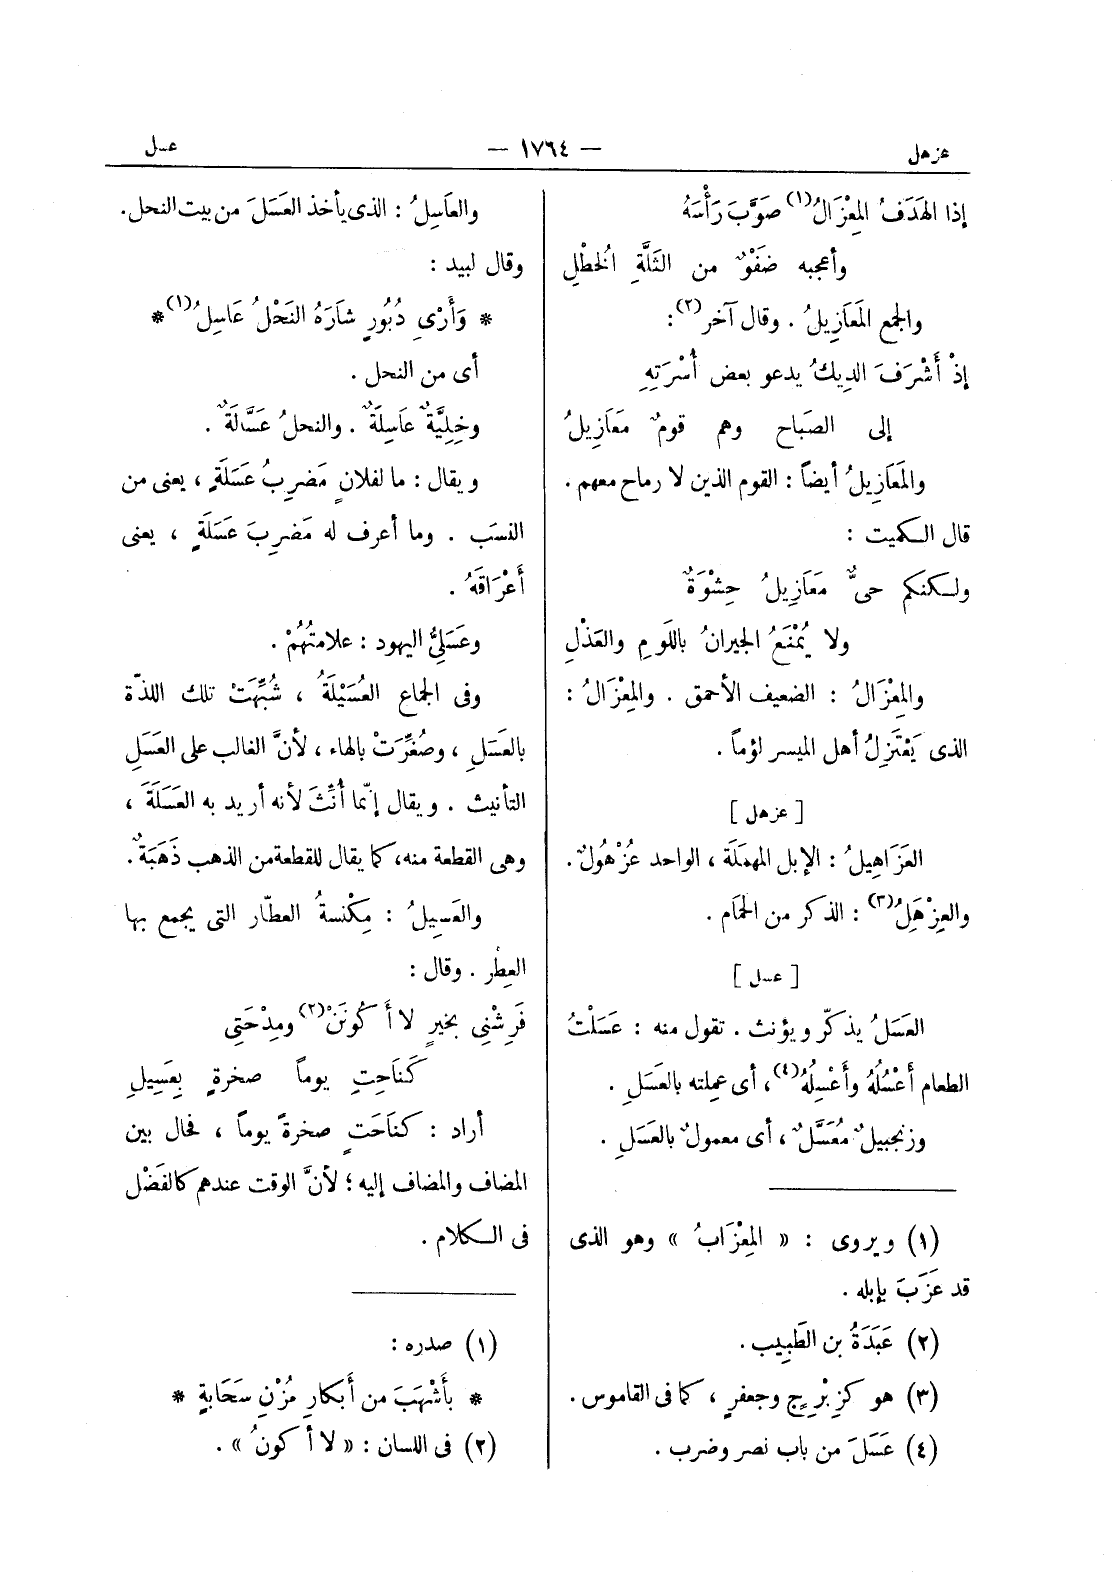 عزهل
— ١٧٦٤ —
عسل
إذا الهَدَفُ المِعْزَالُ(١) صَوَّبَ رَأْسَهُ
وأعجبه ضَفْوٌ من الثَلَّةِ الخُطْلِ
والجمع المَعَازِيلُ . وقال آخر(٢) :
إذْ أَشْرَفَ الديكُ يدعو بعض أُسْرَتِهِ
إلى الصَباح وهم قومٌ مَعَازِيلُ
والمَعَازِيلُ أيضاً : القوم الذين لا رماح معهم .
قال الكميت :
ولكنكم حىٌّ مَعَازِيلُ حِشْوَةٌ
ولا يُمْنَعُ الجيرانُ باللَومِ والعَذْلِ
والمِعْزَالُ : الضعيف الأحمق . والمِعْزَالُ :
الذى يَعْتَزِلُ أهل الميسر لؤماً .
[ عزهل ]
العَزَاهِيلُ : الإبل المهمَلَة ، الواحد عُزْهُولٌ .
والعِزْهَلُ(٣) : الذكر من الحمَام .
[ عسل ]
العَسَلُ يذكّر ويؤنث . تقول منه : عَسَلْتُ
الطعام أَعْسُلُهُ وأَعْسِلُهُ(٤) ، أى عملته بالعَسَلِ .
وزنجبيلٌ مُعَسَّلٌ ، أى معمولٌ بالعَسَلِ .
(١) ويروى : « المِعْزَابُ » وهو الذى
قد عَزَبَ بإبله .
(٢) عَبَدَةُ بن الطَبِيب .
(٣) هو كزِبْرِجٍ وجعفرٍ ، كما فى القاموس .
(٤) عَسَلَ من باب نصر وضرب .
والعَاسِلُ : الذى يأخذ العَسَلَ من بيت النحل .
وقال لبيد :
* وَأَرْىِ دُبُورٍ شارَهُ النَحْلُ عَاسِلُ(١) *
أى من النحل .
وخِلِيَّةٌ عَاسِلَةٌ . والنحلُ عَسَّالَةٌ .
ويقال : ما لفلانٍ مَضرِبُ عَسَلَةٍ ، يعنى من
النسَب . وما أعرف له مَضرِبَ عَسَلَةٍ ، يعنى
أَعْرَاقَهُ .
وعَسَلِىُّ اليهود : علامتُهُمْ .
وفى الجماع العُسَيْلَةُ ، شُبِّهَتْ تلك اللذّة
بالعَسَلِ ، وصُغِّرَتْ بالهاء ، لأنَّ الغالب على العَسَلِ
التأنيث . ويقال إنّما أُنِّثَ لأنه أريد به العَسَلَةَ ،
وهى القطعة منه، كما يقال للقطعة من الذهب ذَهَبَةٌ .
والعَسِيلُ : مِكْنسةُ العطّار التى يجمع بها
العِطْر . وقال :
فَرِشْنِى بخيرٍ لا أَكُونَنْ(٢) ومِدْحَتِى
كَنَاحِتِ يوماً صخرةٍ بِعَسِيلِ
أراد : كنَاحَتِ صخرةً يوماً ، فحال بين
المضاف والمضاف إليه ؛ لأنَّ الوقت عندهم كالفَضْل
فى الكلام .
(١) صدره :
* بأَشْهَبَ من أَبكارِ مُزْنِ سَحَابةٍ *
(٢) فى اللسان : « لا أكونُ » .